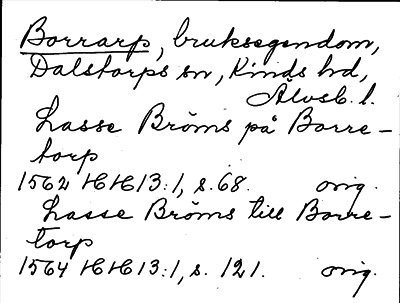 Borrarp, bruksegendom,
Dalstorps sn, Kinds hd,
Älvsb. l.
Lasse Bröms på Borre-
torp
1562 HH 13:1, s. 68. orig.
Lasse Bröms till Borre-
torp
1564 HH 13:1, s. 121. orig.